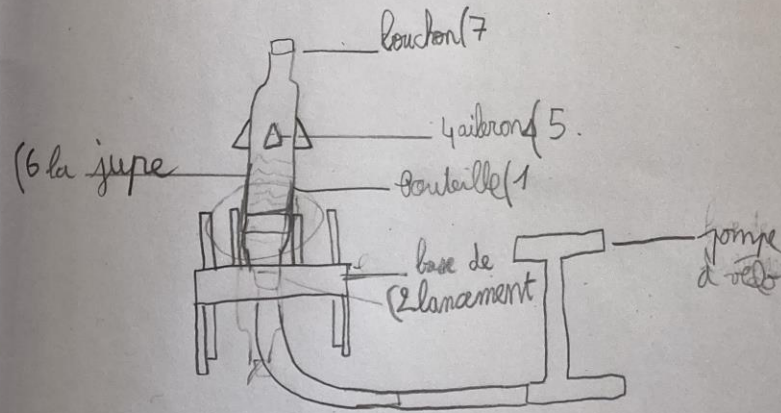 bouchon(7
4 ailerons(5.
(6 la jupe
bouteille(1
base de
(2 lancement
pompe
à vélo